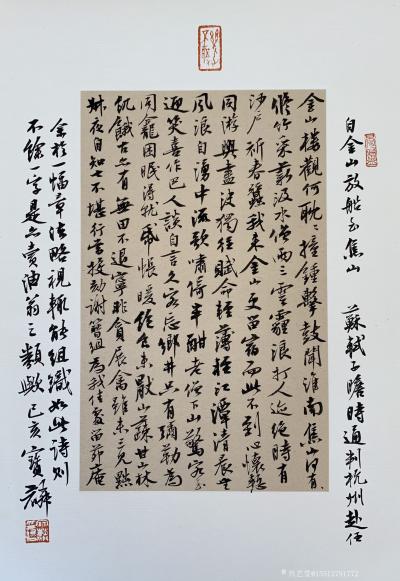 自金山放船至焦山 蘇軾子瞻時通判杭州赴任
金山樓觀何耽〻撞鍾擊鼓聞淮南焦山何有〻
脩竹采薪汲水僧兩三雲霾浪打人迹絕時有
沙戶祈春蠶我來金山更留宿而此不到心懷慙
同游興盡決獨往賦命輕薄輕江潭清晨無
風浪自湧中流歌嘯倚半酣老僧下山驚客至
迎笑喜作巴人談自言久客忘鄉井只有彌勒為
同龕困眠得就紙帳暖飽食未厭山蔬甘山林
飢餓古亦有無田不退寧非貪展禽雖未三見黜
叔夜自知七不堪行當投劾謝簪組為我佳處留茆庵
余於一幅章法略視輒能組織如此詩則
不餘一字是亦賣油翁之類歟己亥寶
15512791772